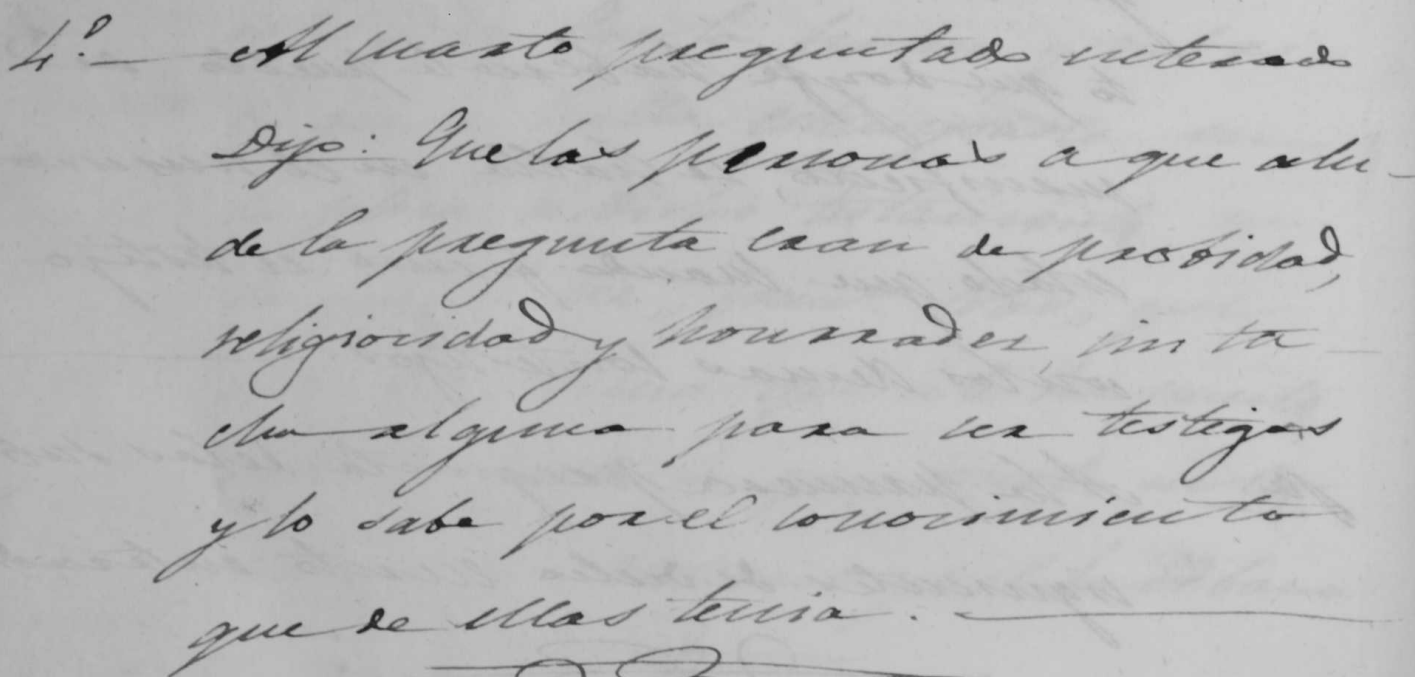 4º — Al cuarto preguntado enterado
Dijo: Que las personas a que alu-
de la pregunta eran de probidad,
religiosidad y hounradez sin ta-
cha alguna para ser testigos
y lo sabe por el conocimiento
que de ellas tenia.